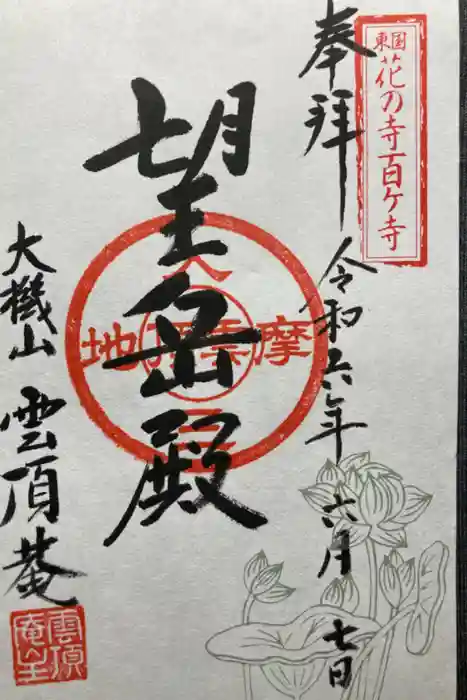 東国
花の寺百ケ寺
奉拝
令和六年六月七日
望岳殿
地 摩
大機山 雲頂菴
雲頂
庵主